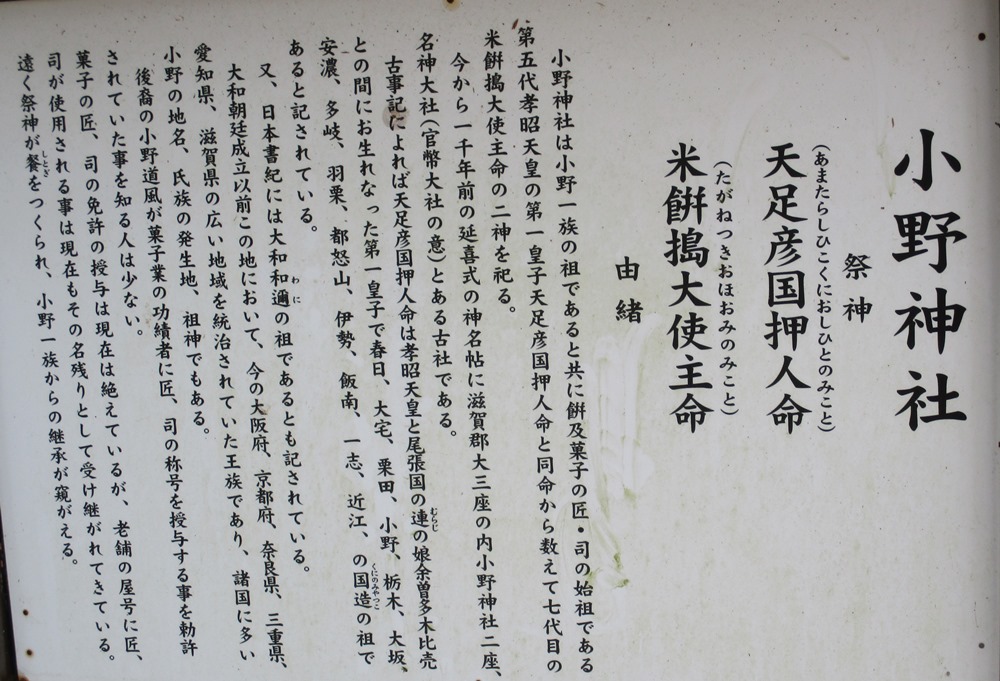 小野神社
祭神
(あまたらしひこくにおしひとのみこと)
天足彦国押人命
(たがねつきおほおみのみこと)
米餅搗大使主命
由緒
小野神社は小野一族の祖であると共に餅及菓子の匠・司の始祖である
第五代孝昭天皇の第一皇子天足彦国押人命と同命から数えて七代目の
米餅搗大使主命の二神を祀る。
今から一千年前の延喜式の神名帖に滋賀郡大三座の内小野神社二座、
名神大社(官幣大社の意)とある古社である。
古事記によれば天足彦国押人命は孝昭天皇と尾張国の連の娘余曽多木比売
むらじ
との間にお生れなった第一皇子で春日、大宅、栗田、小野、栃木、大坂、
安濃、多岐、羽栗、都怒山、伊勢、飯南、一志、近江、の国造の祖で
くにのみやつこ
あると記されている。
又、日本書紀には大和和邇の祖であるとも記されている。
わに
大和朝廷成立以前この地において、今の大阪府、京都府、奈良県、三重県、
愛知県、滋賀県の広い地域を統治されていた王族であり、諸国に多い
小野の地名、氏族の発生地、祖神でもある。
後裔の小野道風が菓子業の功績者に匠、司の称号を授与する事を勅許
されていた事を知る人は少ない。
菓子の匠、司の免許の授与は現在は絶えているが、老舗の屋号に匠、
司が使用される事は現在もその名残りとして受け継がれてきている。
遠く祭神が餈をつくられ、小野一族からの継承が窺がえる。
しとぎ